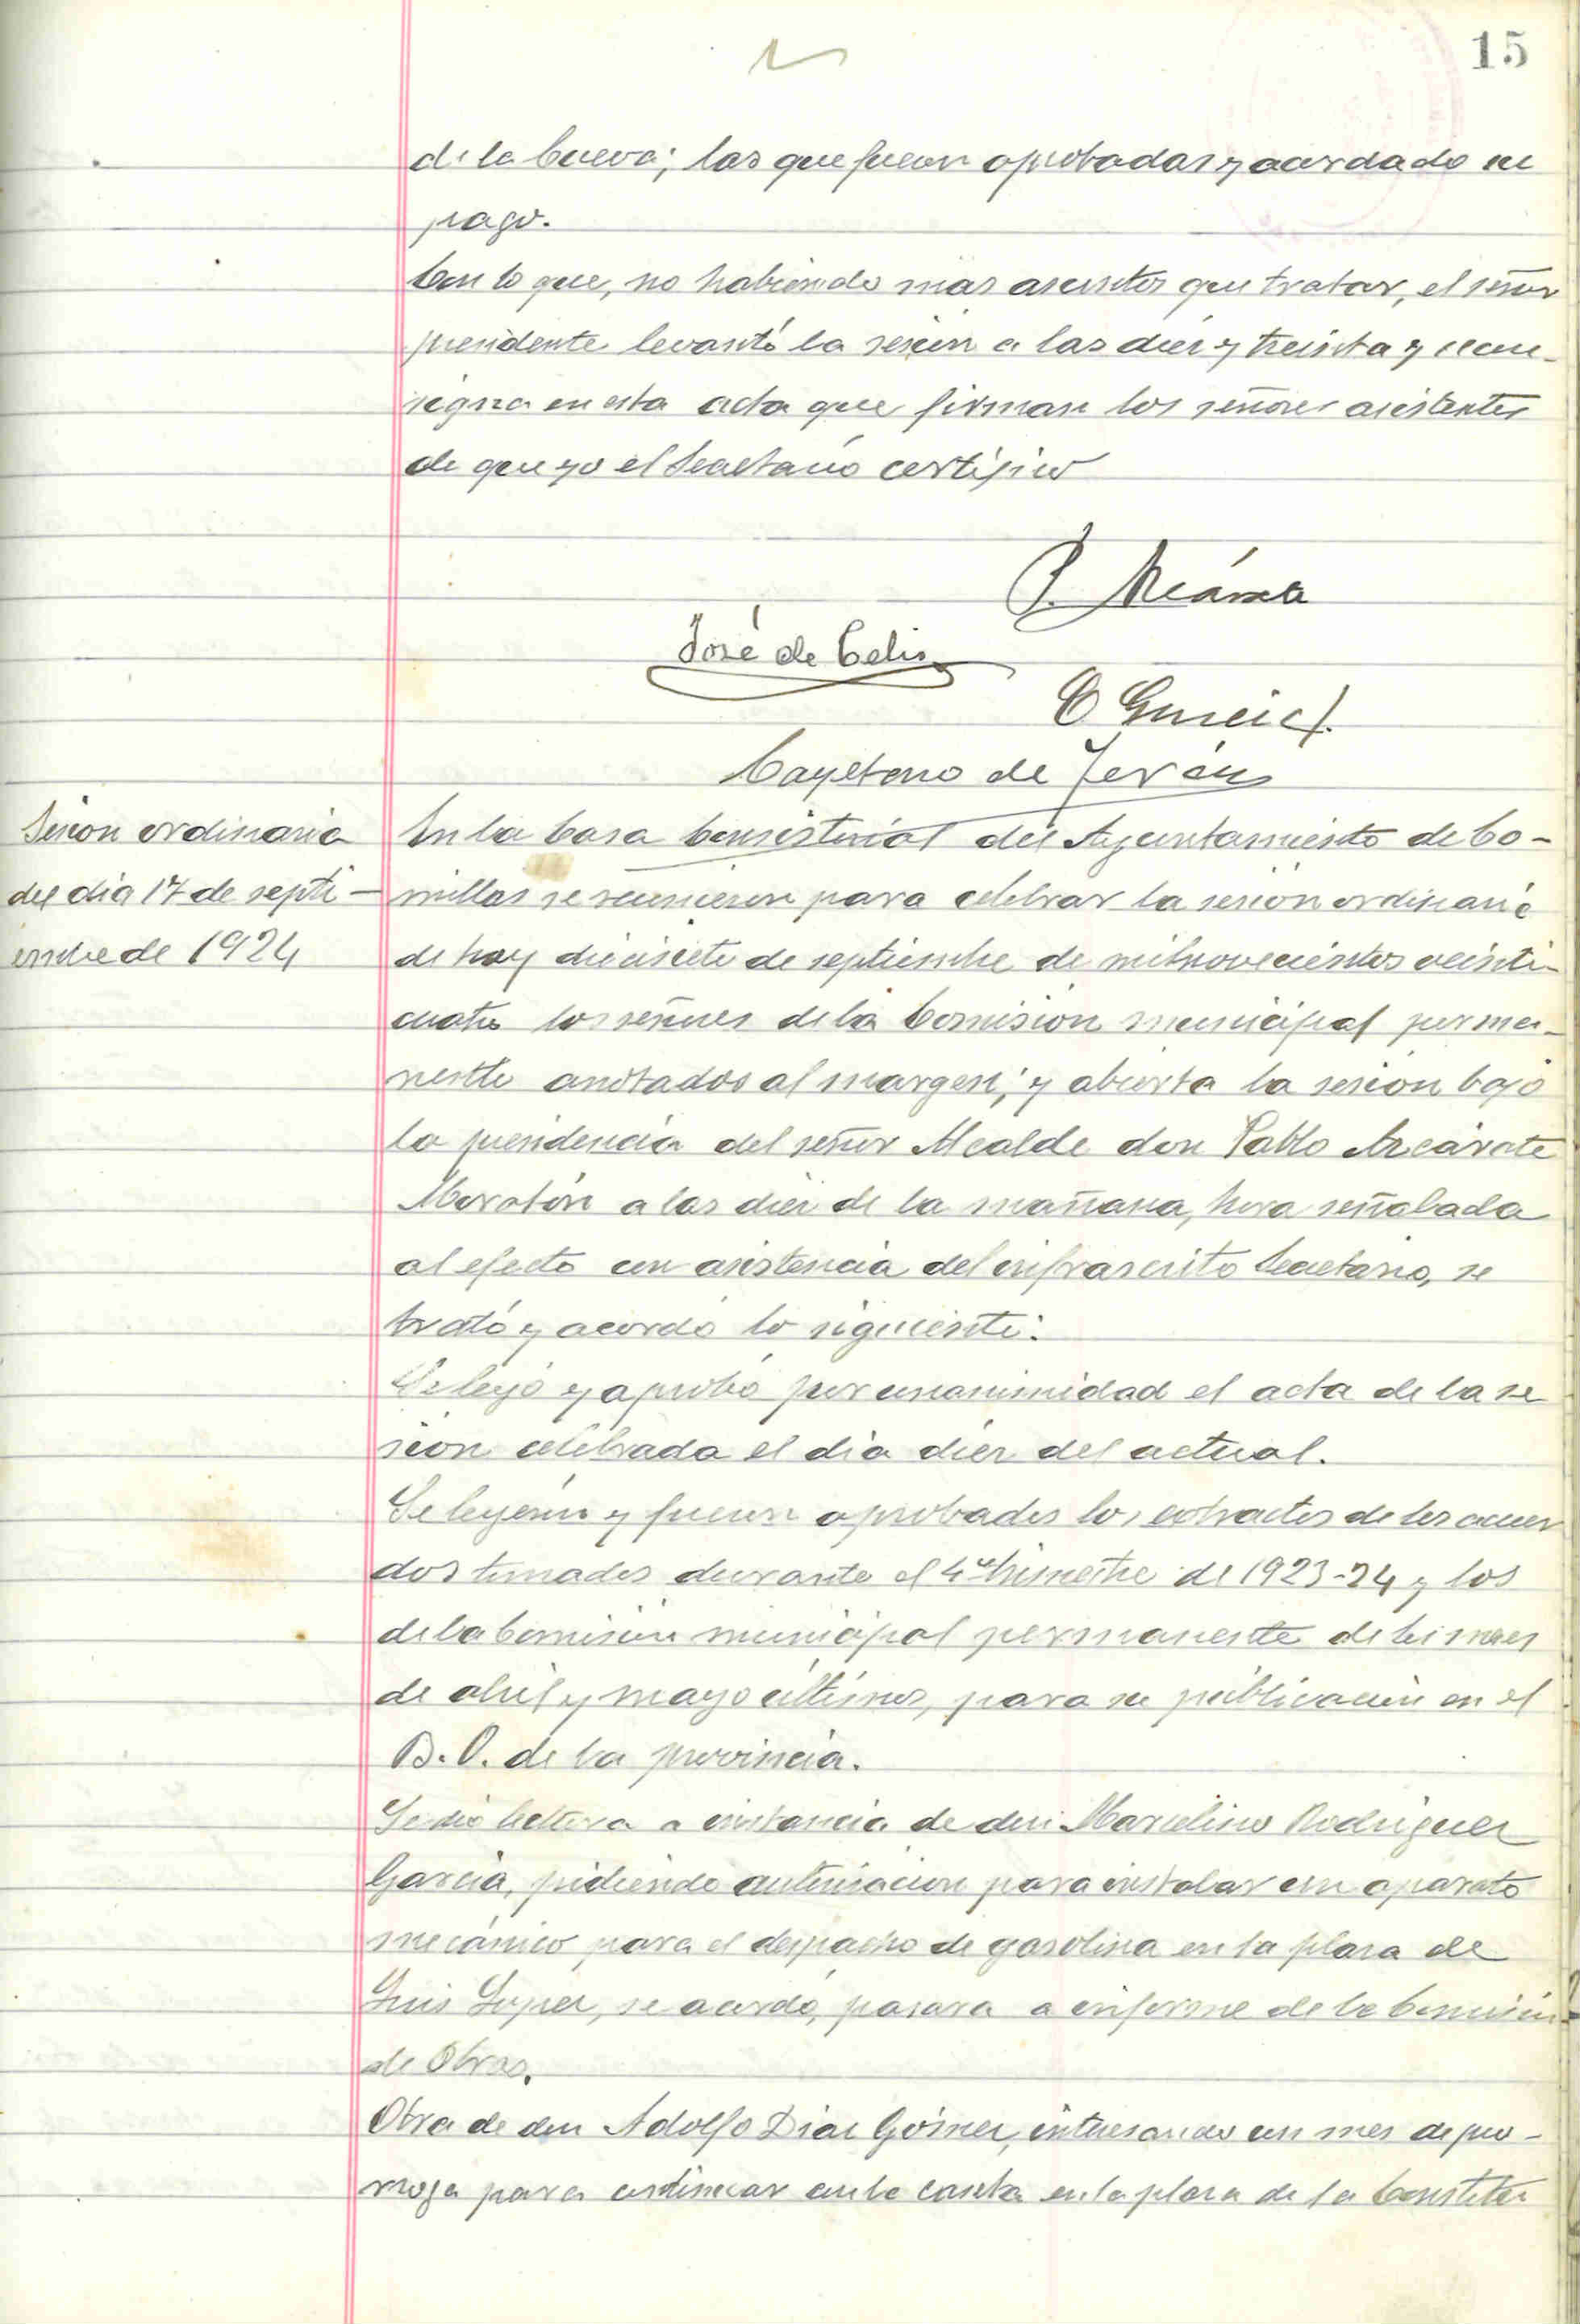 15
de la Cueva; las que fueron aprobadas y acordado su
pago.
Con lo que, no habiendo mas asuntos que tratar, el señor
presidente levantó la sesión a las diez y treinta y se con-
signa en esta acta que firman los señores asistentes
de que yo el Secretario certifico
P. Azcárate
José de Celis
C García
Cayetano de Terán
Sesion ordinaria
del dia 17 de septi-
embre de 1924
En la Casa Consistorial del Ayuntamiento de Co-
millas se reunieron para celebrar la sesión ordinaria
de hoy diecisiete de septiembre de milnovecientos veinti-
cuatro los señores de la Comisión municipal perma-
nente anotados al margen; y abierta la sesión bajo
la presidencia del señor Alcalde don Pablo Azcárate
Moratón a las diez de la mañana, hora señalada
al efecto con asistencia del infrascrito Secretario, se
trató y acordó lo siguiente:
Se leyó y aprobó por unanimidad el acta de la se
sion celebrada el dia diez del actual.
Se leyeron y fueron aprobados los extractos de los acuer
dos tomados durante el 4º trimestre de 1923-24 y los
de la Comisión municipal permanente de los meses
de abril y mayo últimos, para su publicación en el
B. O. de la provincia.
Se dió lectura a instancia de don Marcelino Rodriguez
García, pidiendo autorización para instalar un aparato
mecánico para el despacho de gasolina en la plaza de
Luis Lopez, se acordó, pasara a informe de la Comisión
de Obras.
Otra de don Adolfo Diaz Gómez, interesando un mes de pro-
rroga para continuar con la caseta en la plaza de la Constitu